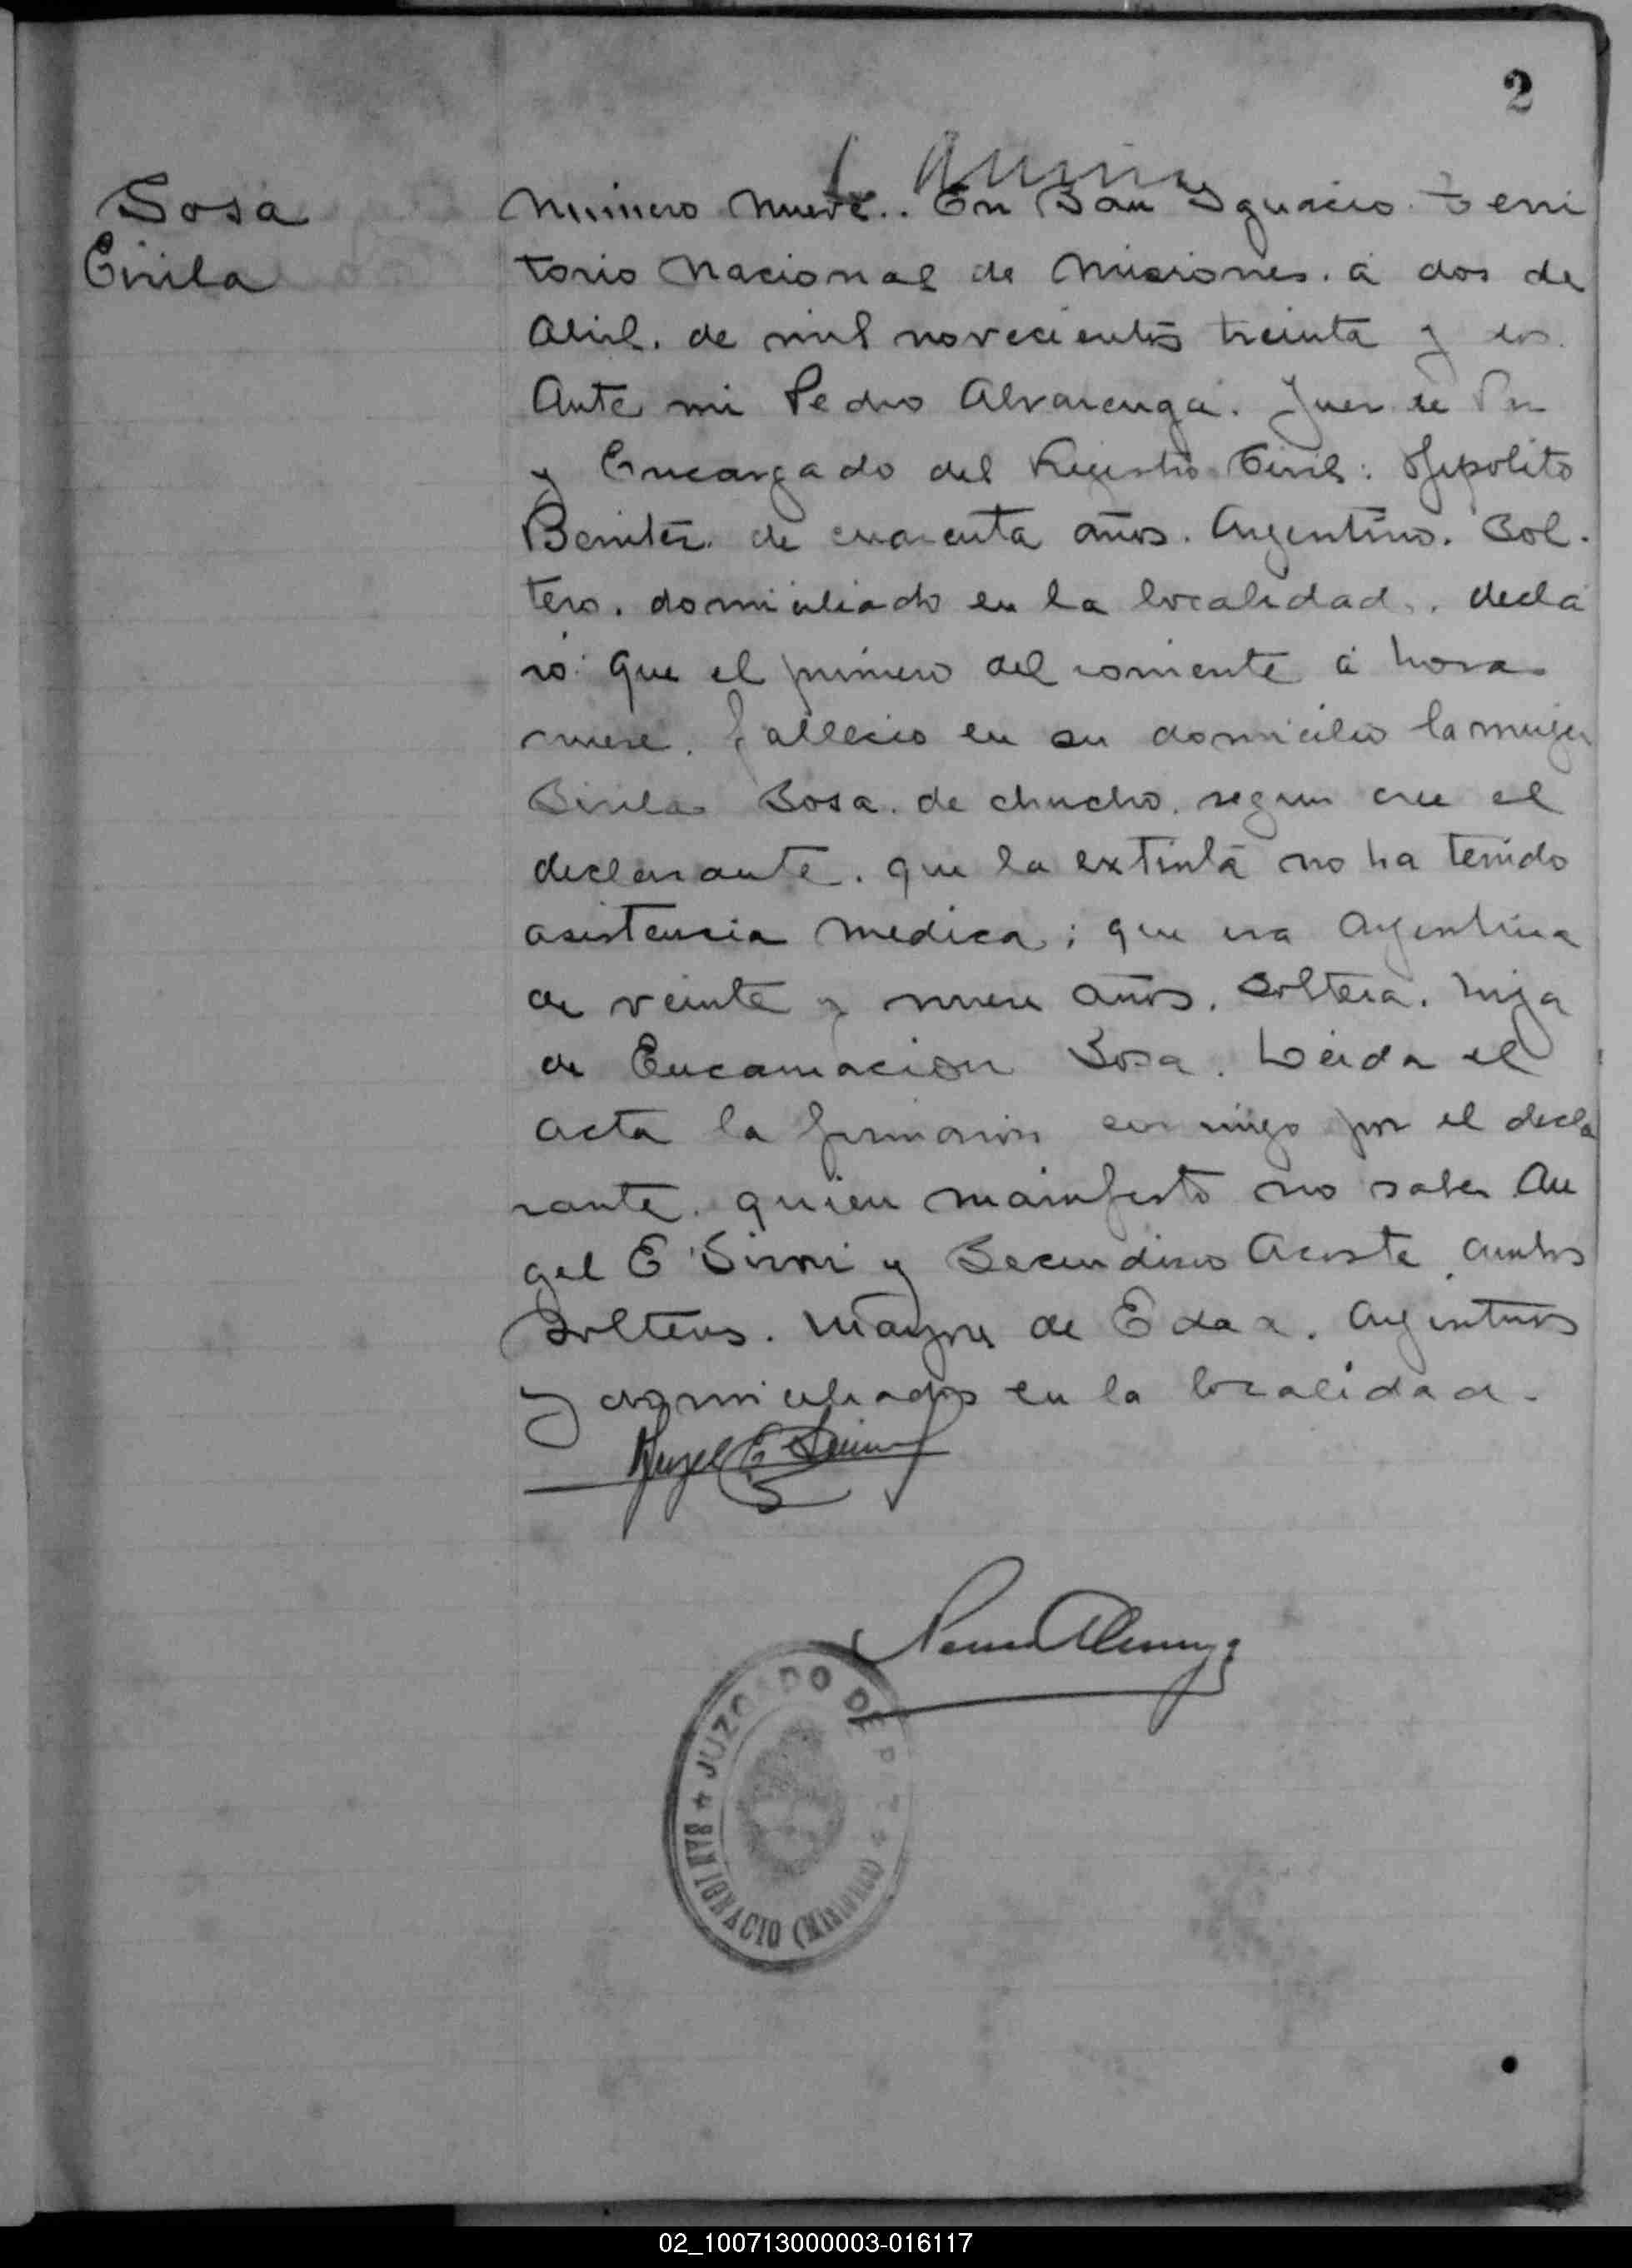 2
Sosa
Cirila
Numero Nueve.. En San Ignacio terri
torio Nacional de Misiones. á dos de
Abril. de mil novecientos treinta y dos.
Ante mi Pedro Alvarenga. Juez de Paz
y Encargado del Registro Civil: Hipolito
Benitez. de cuarenta años. Argentino. Sol.
tero. domiciliado en la localidad. decla
ró: que el primero del corriente á hora
nueve. fallecio en su domicilio la mujer
Sirila Sosa. de chucho. segun cree el
declarante. que la extinta no ha tenido
asistencia medica; que era Argentina
de veinte y nueve años. Soltera. hija
de Encarnacion Sosa. Leida el
acta la firmaron conmigo por el decla
rante. quien manifesto no saber An
gel E y Secundino Acosta ambos
Solteros. Mayores de Edad. Argentinos
y domiciliados en la localidad.
Angel E
Pedro Alvarenga
JUZGADO DE PAZ
SAN IGNACIO (MISIONES)
02_100713000003-016117